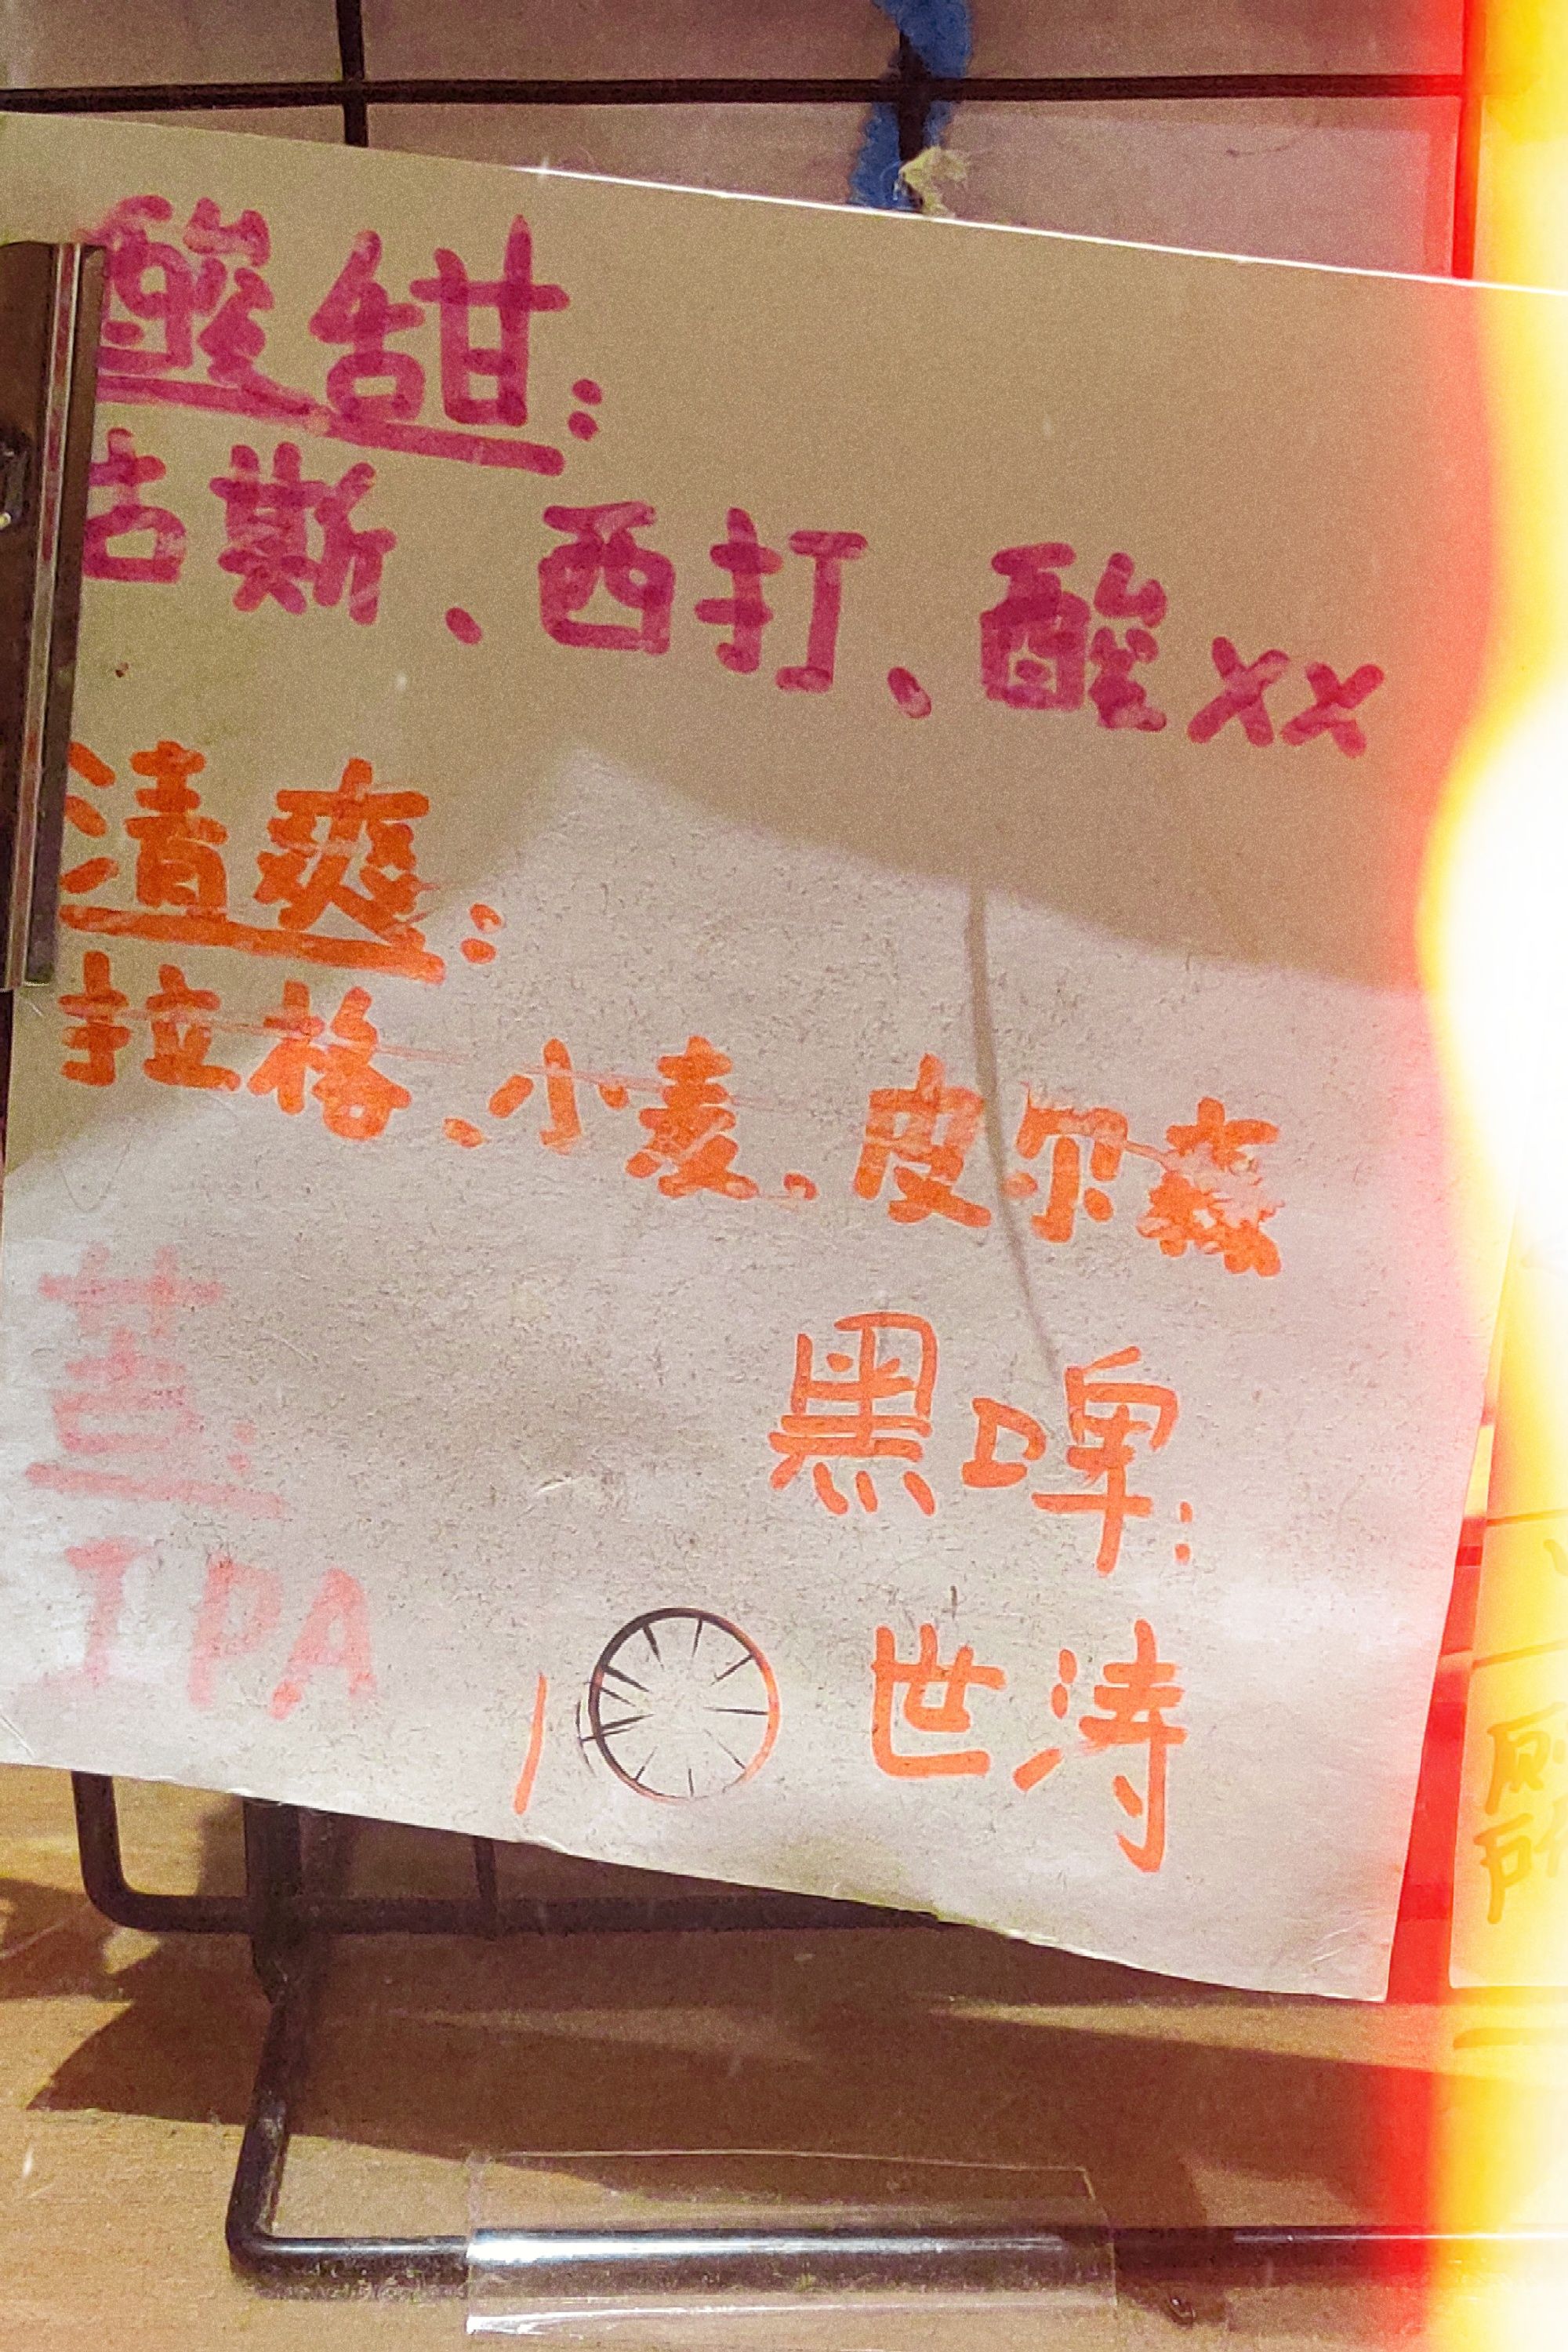 酸甜:
古斯、西打、酸xx
清爽:
拉格、小麦、皮尔森
苦:
IPA
黑啤:
世涛
厕
所